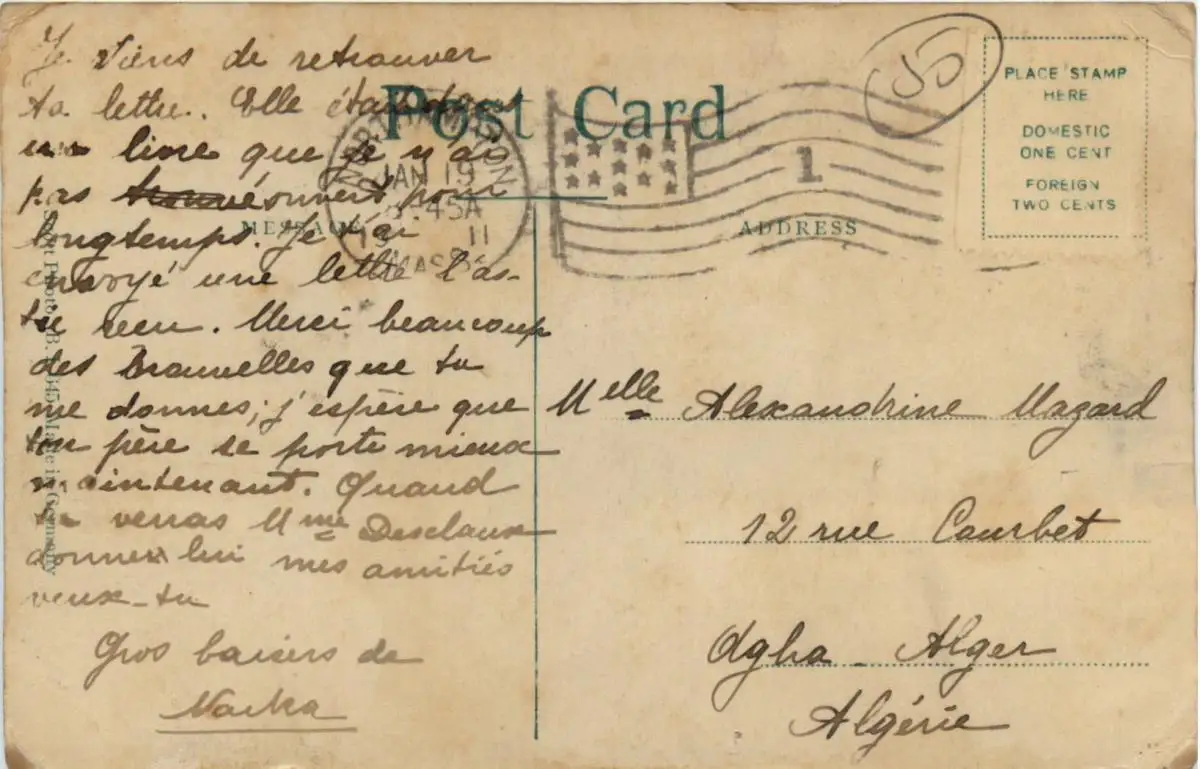 Je viens de retrouver
ta lettre. Elle était dans
un livre que je n'ai
pas trouvé ouvert pour
longtemps. Je t'ai
envoyé une lettre l'as-
tu reçu. Merci beaucoup
des Brauvelles que tu
me donnes; j'espère que
ton père se porte mieux
maintenant. Quand
tu verras Mme Desclaux
donner lui mes amitiés
veux-tu
Gros baisers de
Post Card
MESSAGE
NORTHAMPTON
JAN 19
8:45A
19 11
MASS.
1
55
PLACE STAMP
HERE
DOMESTIC
ONE CENT
FOREIGN
TWO CENTS
ADDRESS
Melle Alexandrine Mazard
12 rue Courbet
Agha Alger
Algérie
Made in Germany